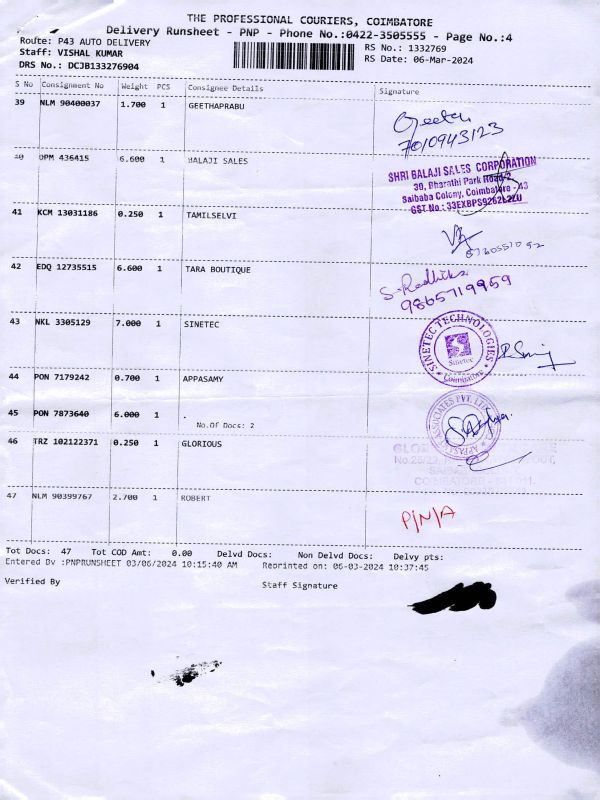 THE PROFESSIONAL COURIERS, COIMBATORE
Delivery Runsheet - PNP - Phone No.:0422-3505555 - Page No.:4
Route: P43 AUTO DELIVERY
RS No.: 1332769
Staff: VISHAL KUMAR
RS Date: 06-Mar-2024
DRS No.: DCJB133276904
S No Consignment No Weight PCS Consignee Details Signature
39 NLM 90400037 1.700 1 GEETHAPRABU
Geetha
7010943123
40 OPM 436415 6.600 1 BALAJI SALES
SHRI BALAJI SALES CORPORATION
30, Bharathi Park Road-2
Saibaba Colony, Coimbatore - 43
GST No : 33EXBPS9262L2ZU
41 KCM 13031186 0.250 1 TAMILSELVI
42 EDQ 12735515 6.600 1 TARA BOUTIQUE
S. Radhika
9865719959
43 NKL 3305129 7.000 1 SINETEC
SINETEC TECHNOLOGIES
Sinetec
Coimbatore
44 PON 7179242 0.700 1 APPASAMY
45 PON 7873640 6.000 1 .
No.Of Docs: 2
ASSOCIATES PVT. LTD
46 TRZ 102122371 0.250 1 GLORIOUS
47 NLM 90399767 2.700 1 ROBERT
P/N/A
Tot Docs: 47 Tot COD Amt: 0.00 Delvd Docs: Non Delvd Docs: Delvy pts:
Entered By :PNPRUNSHEET 03/06/2024 10:15:40 AM Reprinted on: 06-03-2024 10:37:45
Verified By Staff Signature